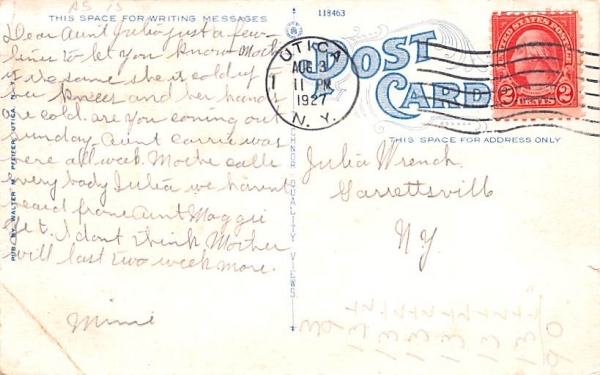 AS IS
THIS SPACE FOR WRITING MESSAGES
118463
Dear Aunt Julia just a few
lines to let you know Mother
is the same she is cold up
her knees and her hands
are cold. are you coming out
Sunday. Aunt Carrie was
here all week. Mothe calls
every body Julia we havent
heard from Aunt Maggie
yet. I dont think Mother
will last two week more.
Minie
PUB. BY WALTER M. PFEIFER, UTICA, N.Y.
QUALITY VIEWS.
UTICA
AUG 3
11 PM
1
1927
N.Y.
POST
CARD
UNITED STATES POSTAGE
2 CENTS 2
THIS SPACE FOR ADDRESS ONLY
Julia Wrench,
Garrettsvill
N.Y.